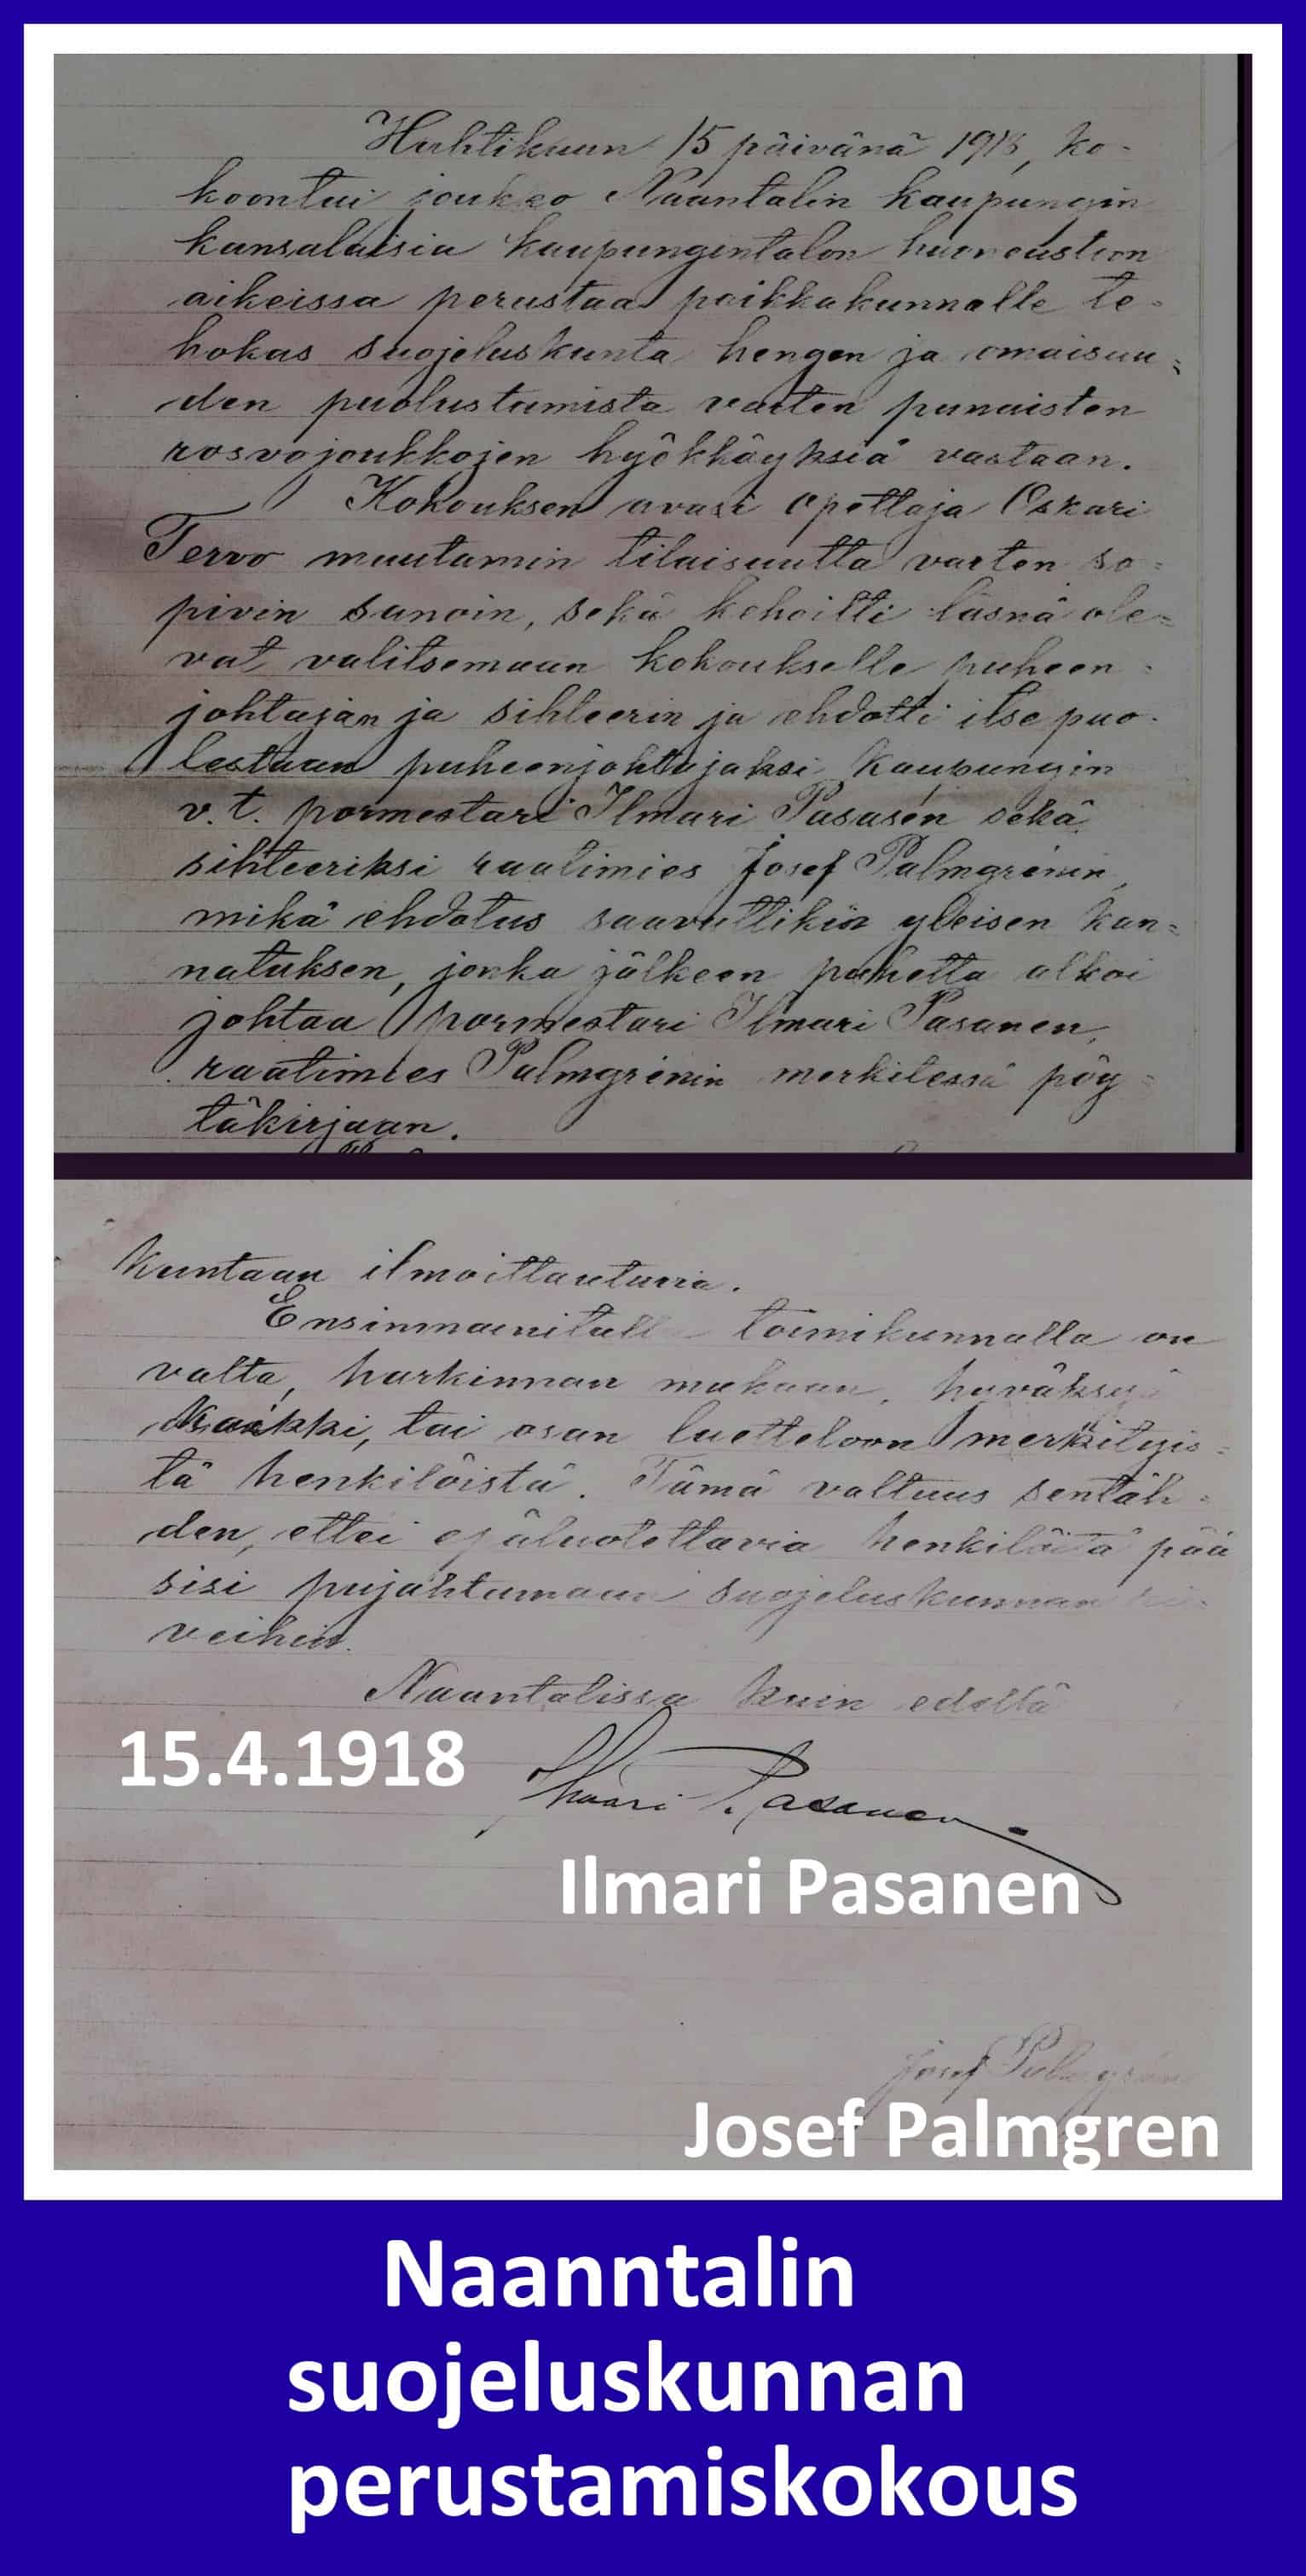 Huhtikuun 15 päivänä 1918, ko-
koontui joukko Naantalin kaupungin
kansalaisia kaupungintalon huoneuston
aikeissa perustaa paikkakunnalle te-
hokas suojeluskunta hengen ja omaisuu-
den puolustamista varten punaisten
rosvojoukkojen hyökkäyksiä vastaan.
Kokouksen avasi opettaja Oskari
Tervo muutamin tilaisuutta varten so-
pivin sanoin, sekä kehoitti läsnä ole-
vat valitsemaan kokoukselle puheen-
johtajan ja sihteerin ja ehdotti itse puo-
lestaan puheenjohtajaksi kaupungin
v.t. pormestari Ilmari Pasasen sekä
sihteeriksi raatimies Josef Palmgrénin,
mikä ehdotus saavuttikin yleisen kan-
natuksen, jonka jälkeen puhetta alkoi
johtaa pormestari Ilmari Pasanen,
raatimies Palmgrénin merkitessä pöy-
täkirjaan.
kuntaan ilmoittautuvia.
toimikunnalla on
valta, harkinnan mukaan, hyväksyä
kaikki, tai osan luetteloon merkityis-
tä henkilöistä. Tämä valtuus sentäh-
den, ettei epäluotettavia henkilöitä pää
sisi pujahtamaan suojeluskunnan ri-
veihin.
Naantalissa kuin edellä
15.4.1918
Ilmari Pasanen
Ilmari Pasanen
Josef Palmgrén
Josef Palmgren
Naanntalin
suojeluskunnan
perustamiskokous